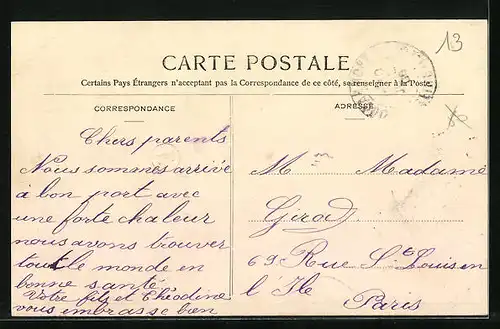 13
CARTE POSTALE
Certains Pays Étrangers n'acceptant pas la Correspondance de ce côté, se renseigner à la Poste
CORRESPONDANCE
Chers parents
Nous sommes arrivé
à bon port avec
une forte chaleur
nous avons trouver
tout le monde en
bonne santé
Votre fils et Théodine
vous embrasse bien
ADRESSE
M Madame
Girod
69 Rue St Louis en
l Ile
Paris